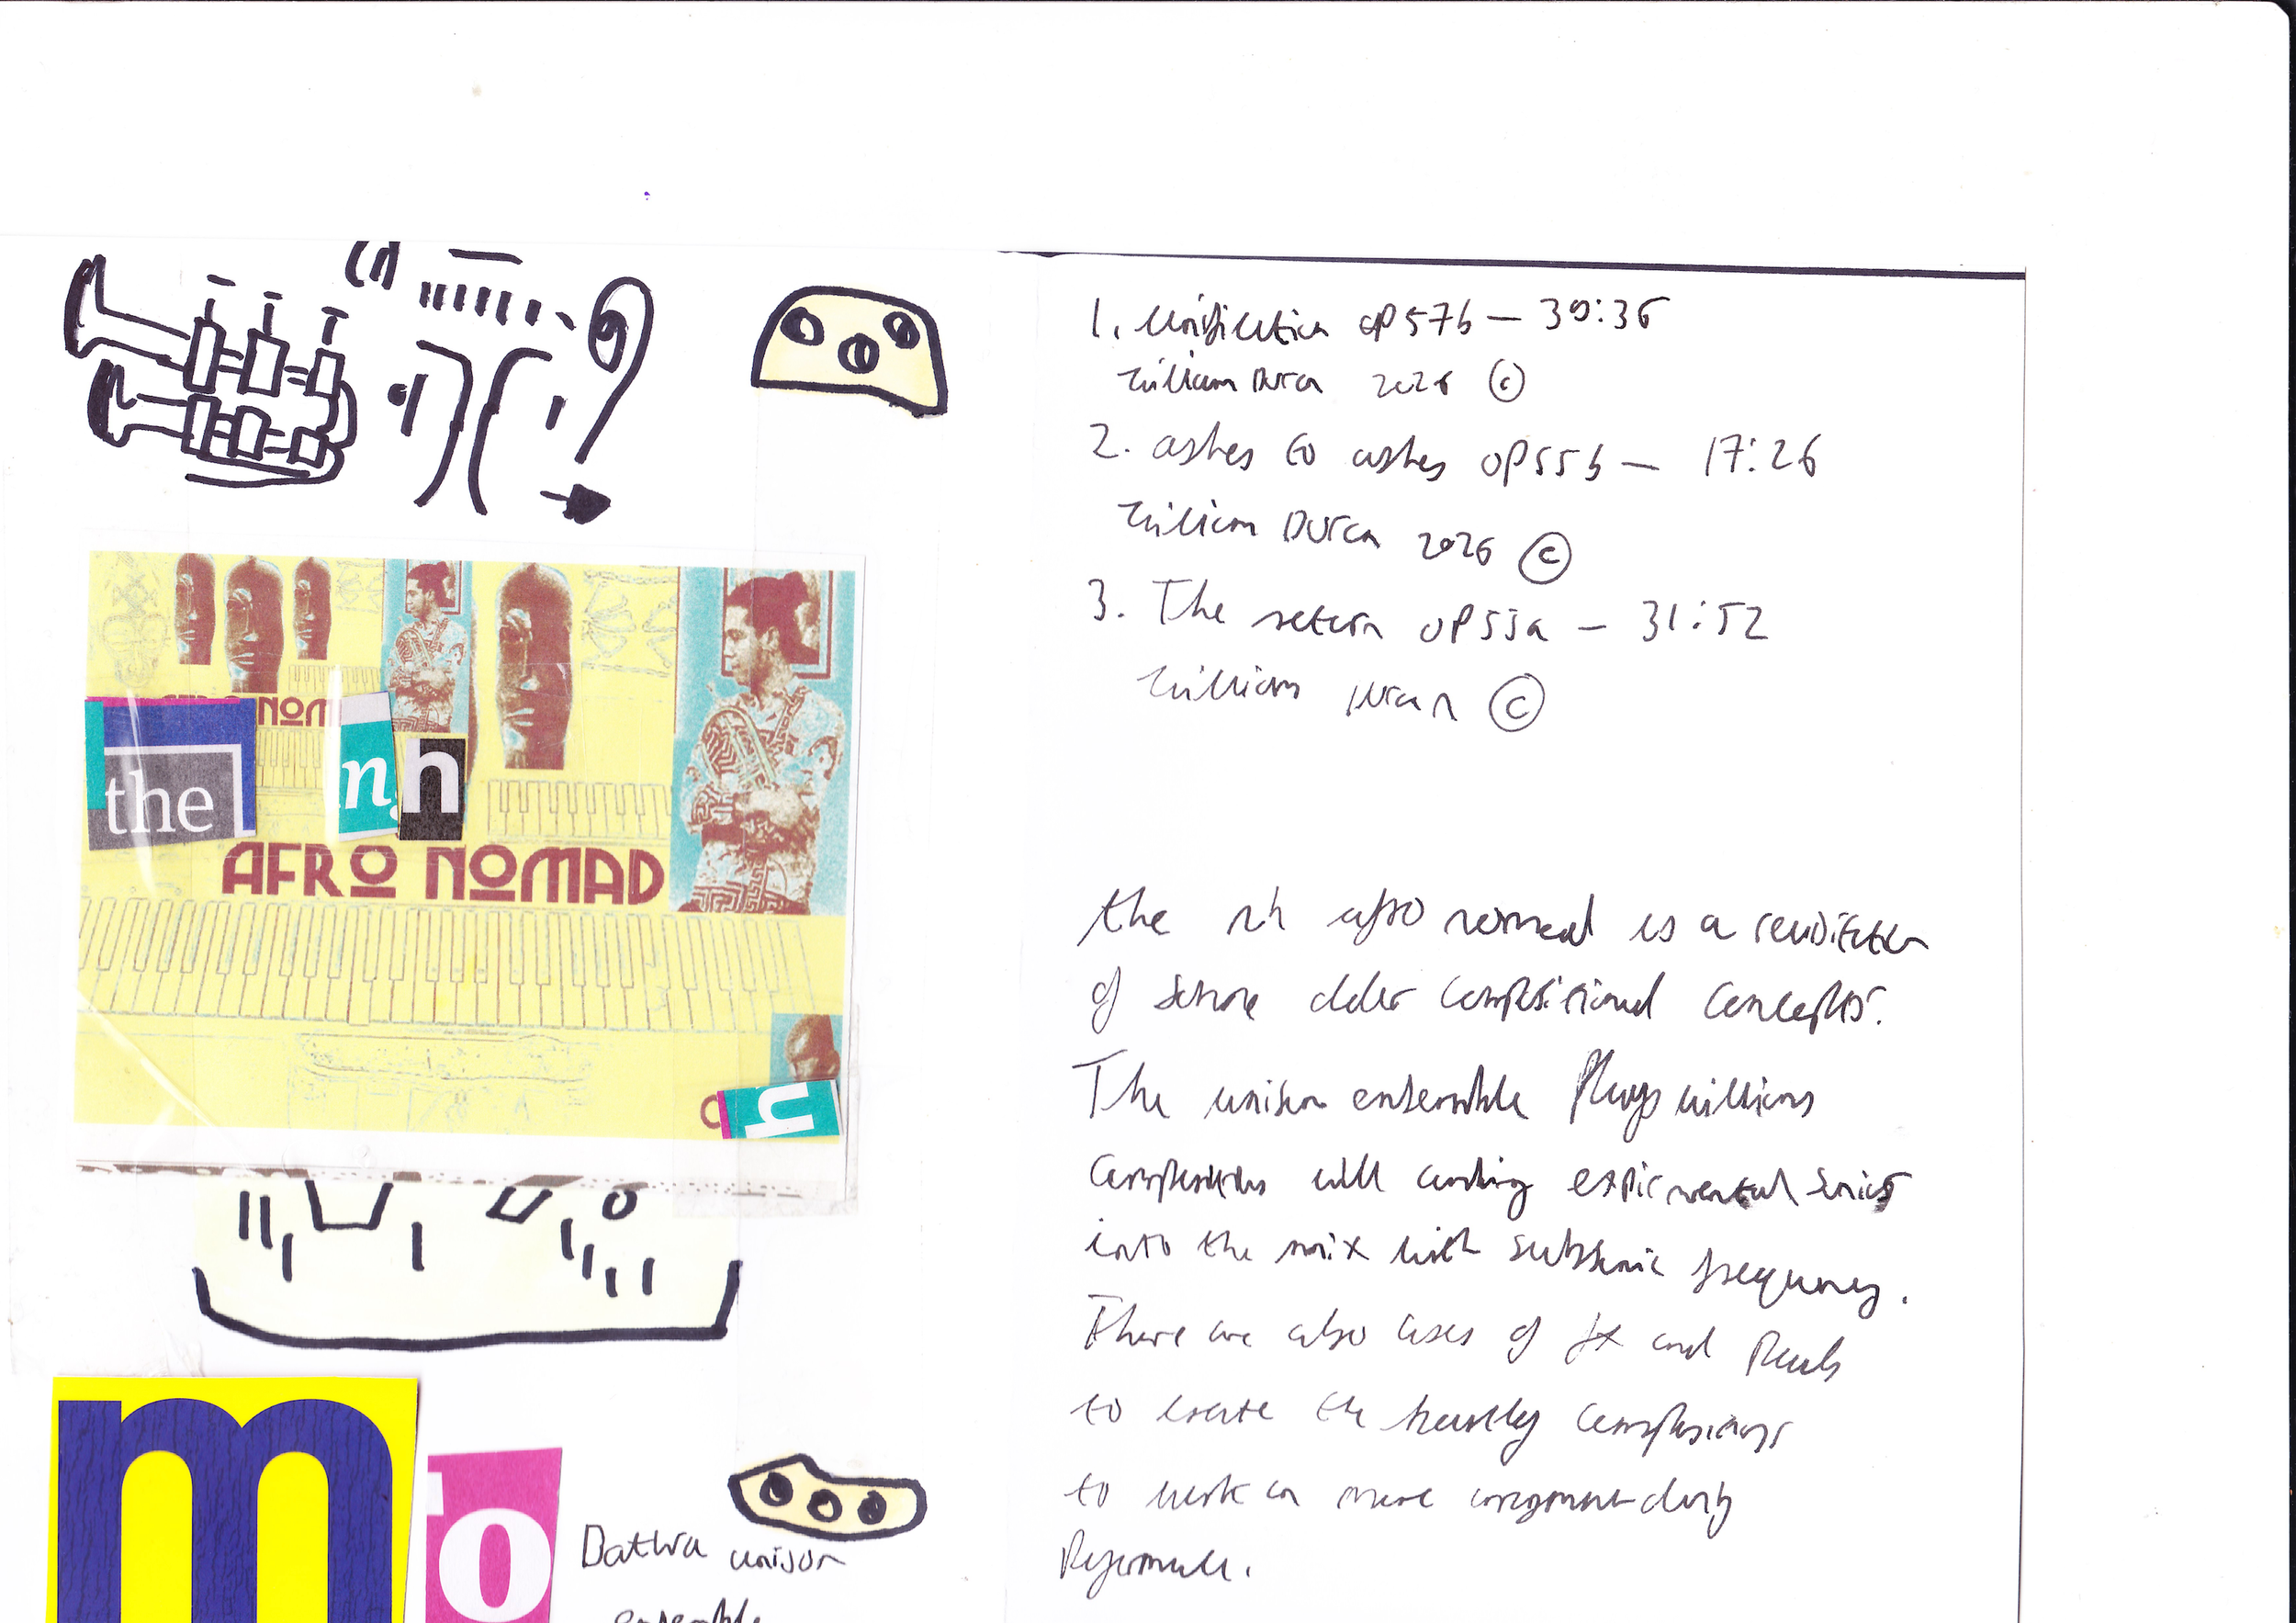 NOM
the
n
h
AFRO NOMAD
h
m
o
Dathra unison
ensemble
1. Unification op57b – 39:36
William Duran 2026 ©
2. ashes to ashes op55b – 17:26
William Duran 2026 ©
3. The return op53a – 31:52
William Duran ©
the nh afro nomad is a
of some older compositional concepts.
The unison ensemble Plays williams
compositions will adding expiremental sonics
into the mix with subsonic frequency.
There are also uses of fx and Pedals
to create the compositions
to work in more